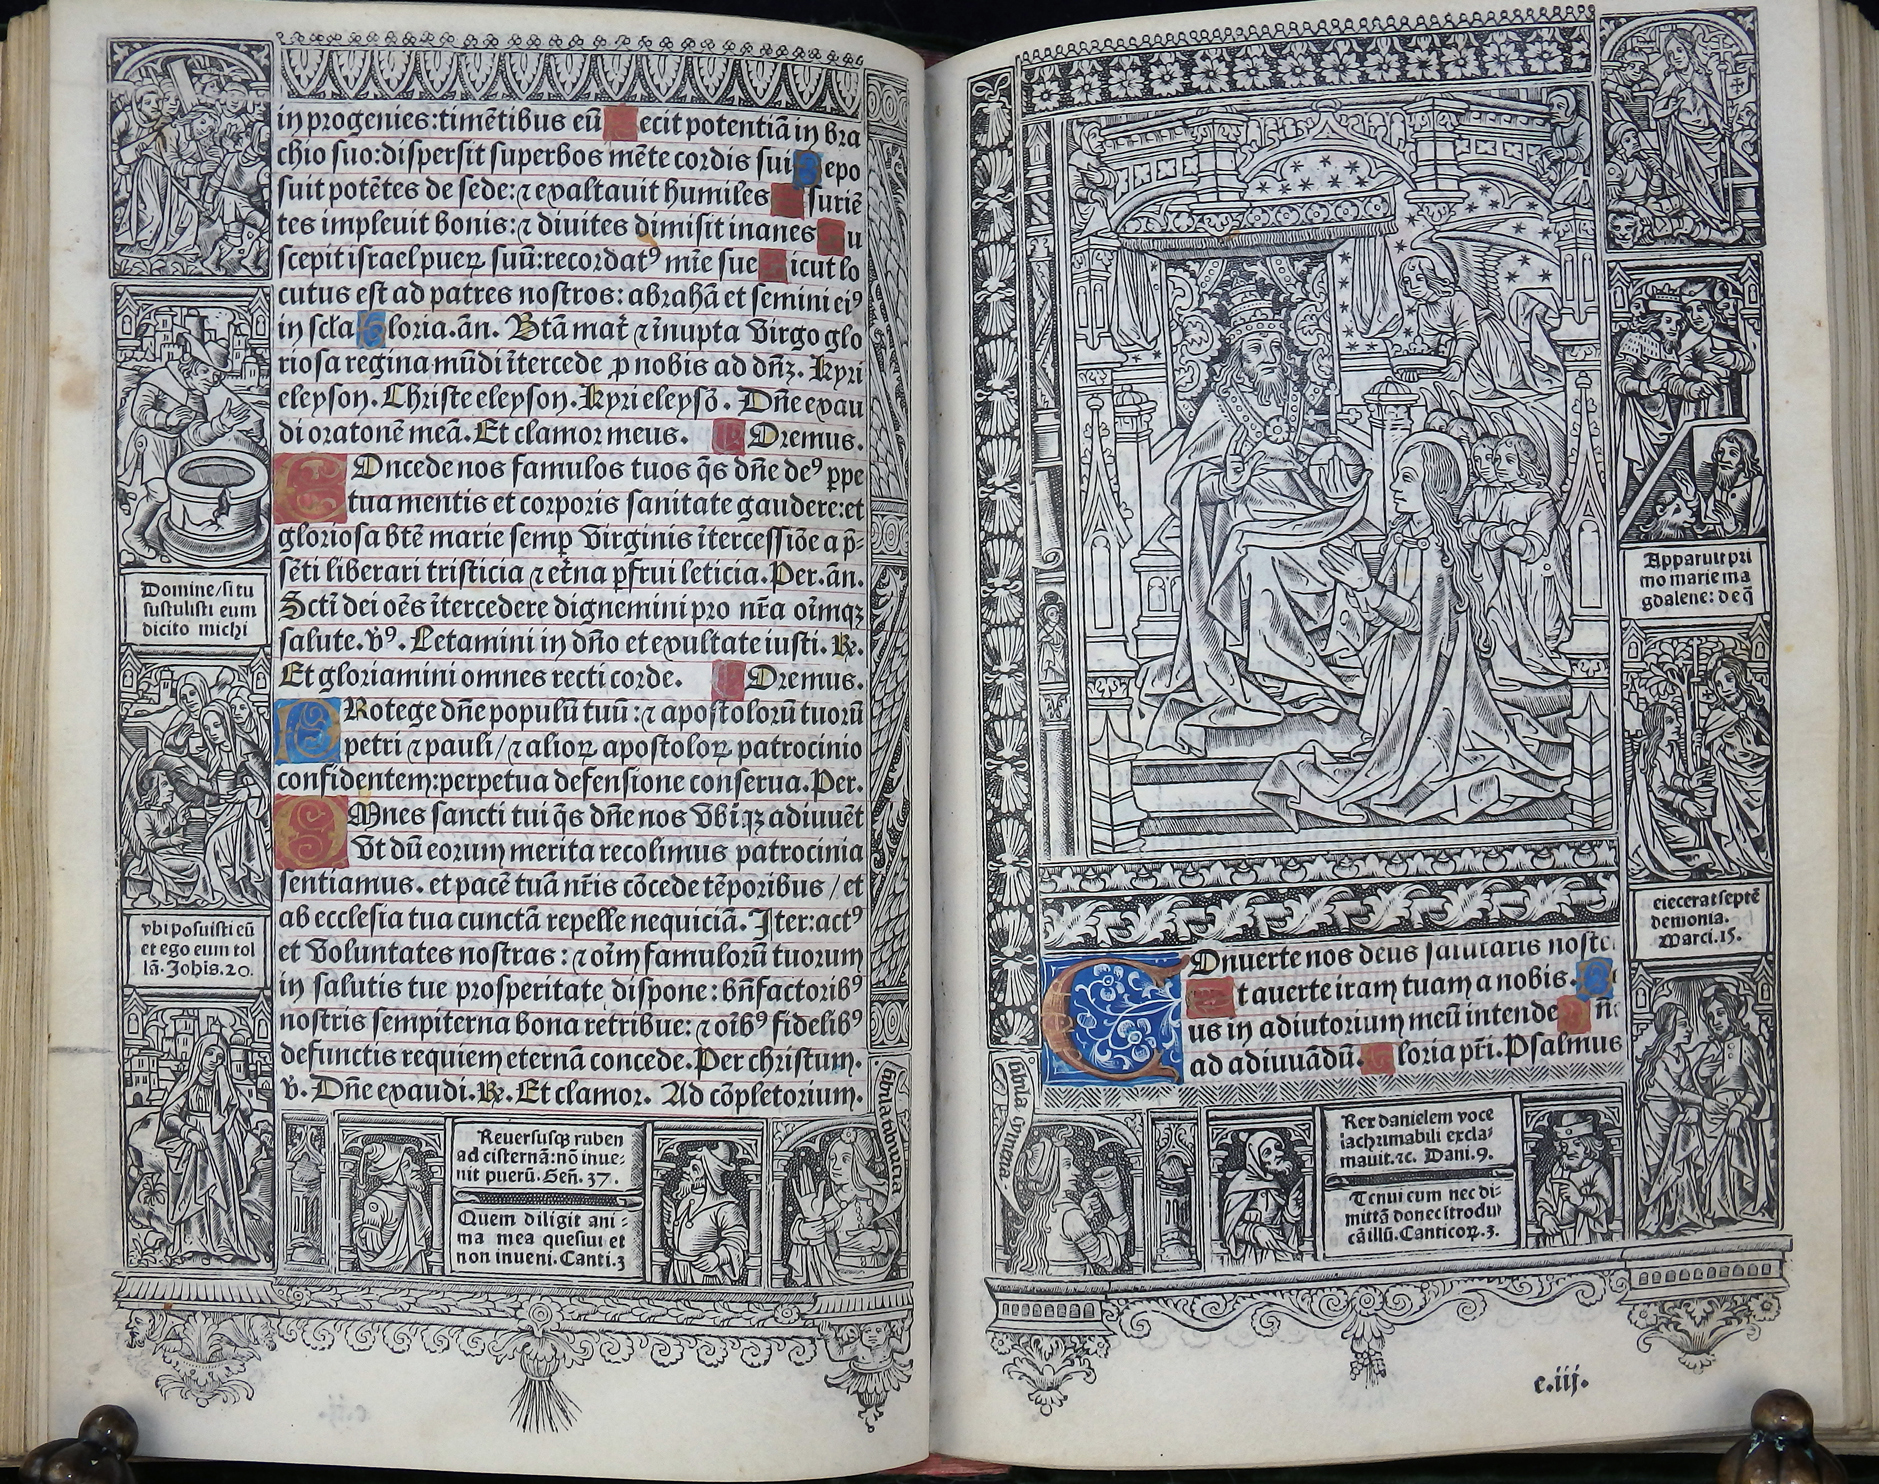 in progenies:timẽtibus eũ ecit potentiã in bra
chio suo:dispersit superbos mẽte cordis sui epo
suit potẽtes de sede:⁊ exaltauit humiles suriẽ
tes impleuit bonis:⁊ diuites dimisit inanes u
scepit israel pueꝝ suũ:recordatꝰ mĩe sue icut lo
cutus est ad patres nostros: abrahã et semini eiꝰ
in scła Gloria.añ. Btã mat̃ ⁊ ĩnupta virgo glo
riosa regina mũdi ĩtercede ꝓ nobis ad dñꝫ. Kyri
eleyson. Christe eleyson. Kyri eleysõ. Dñe exau
di orationẽ meã. Et clamor meus. Oremus.
COncede nos famulos tuos q̃s dñe deꝰ ꝑpe
tua mentis et corporis sanitate gaudere:et
gloriosa btẽ marie semꝑ virginis ĩtercessiõe a p̃-
sẽti liberari tristicia ⁊ et̃na ꝑfrui leticia.Per.añ.
Scti dei oẽs ĩtercedere dignemini pro nr̃a oĩmqꝫ
salute. ꝟꝰ. Letamini in dño et exultate iusti. ꝶ.
Et gloriamini omnes recti corde. Oremus.
PRotege dñe populũ tuũ: ⁊ apostolorũ tuorũ
petri ⁊ pauli/⁊ alioꝝ apostoloꝝ patrocinio
confidentem:perpetua defensione conserua.Per.
OMnes sancti tui q̃s dñe nos vbĩqꝫ adiuuẽt
vt dũ eorum merita recolimus patrocinia
sentiamus. et pacẽ tuã nr̃is cõcede tẽporibus / et
ab ecclesia tua cunctã repelle nequiciã. Iter:actꝰ
et voluntates nostras: ⁊ oĩm famulorũ tuorum
in salutis tue prosperitate dispone: bñfactoribꝰ
nostris sempiterna bona retribue: ⁊ oĩbꝰ fidelibꝰ
defunctis requiem eternã concede. Per christum.
ꝟ. Dñe exaudi. ꝶ. Et clamor. Ad cõpletorium.
Domine/si tu
sustulisti eum
dicito michi
vbi posuisti eũ
et ego eum tol
lã. Johis. 20.
Reuersusqꝫ ruben
ad cisternã:nõ inue-
nit puerũ. Geñ. 37.
Quem diligit ani-
ma mea quesiui et
non inueni. Canti. 3
Conuerte nos deus salutaris noste
Et auerte iram tuam a nobis.
us in adiutorium meũ intende ñe
ad adiuuãdũ. Gloria pr̃i. Psalmus
Apparuit pri
mo marie ma
gdalene: de q̃
eiecerat septẽ
demonia.
Marci. 15.
Rex danielem voce
lachrimabili excla-
mauit. ⁊c. Dani. 9.
Tenui eum nec di-
mittã donec ĩtrodu
cã illũ. Canticoꝝ. 3.
e.iij.